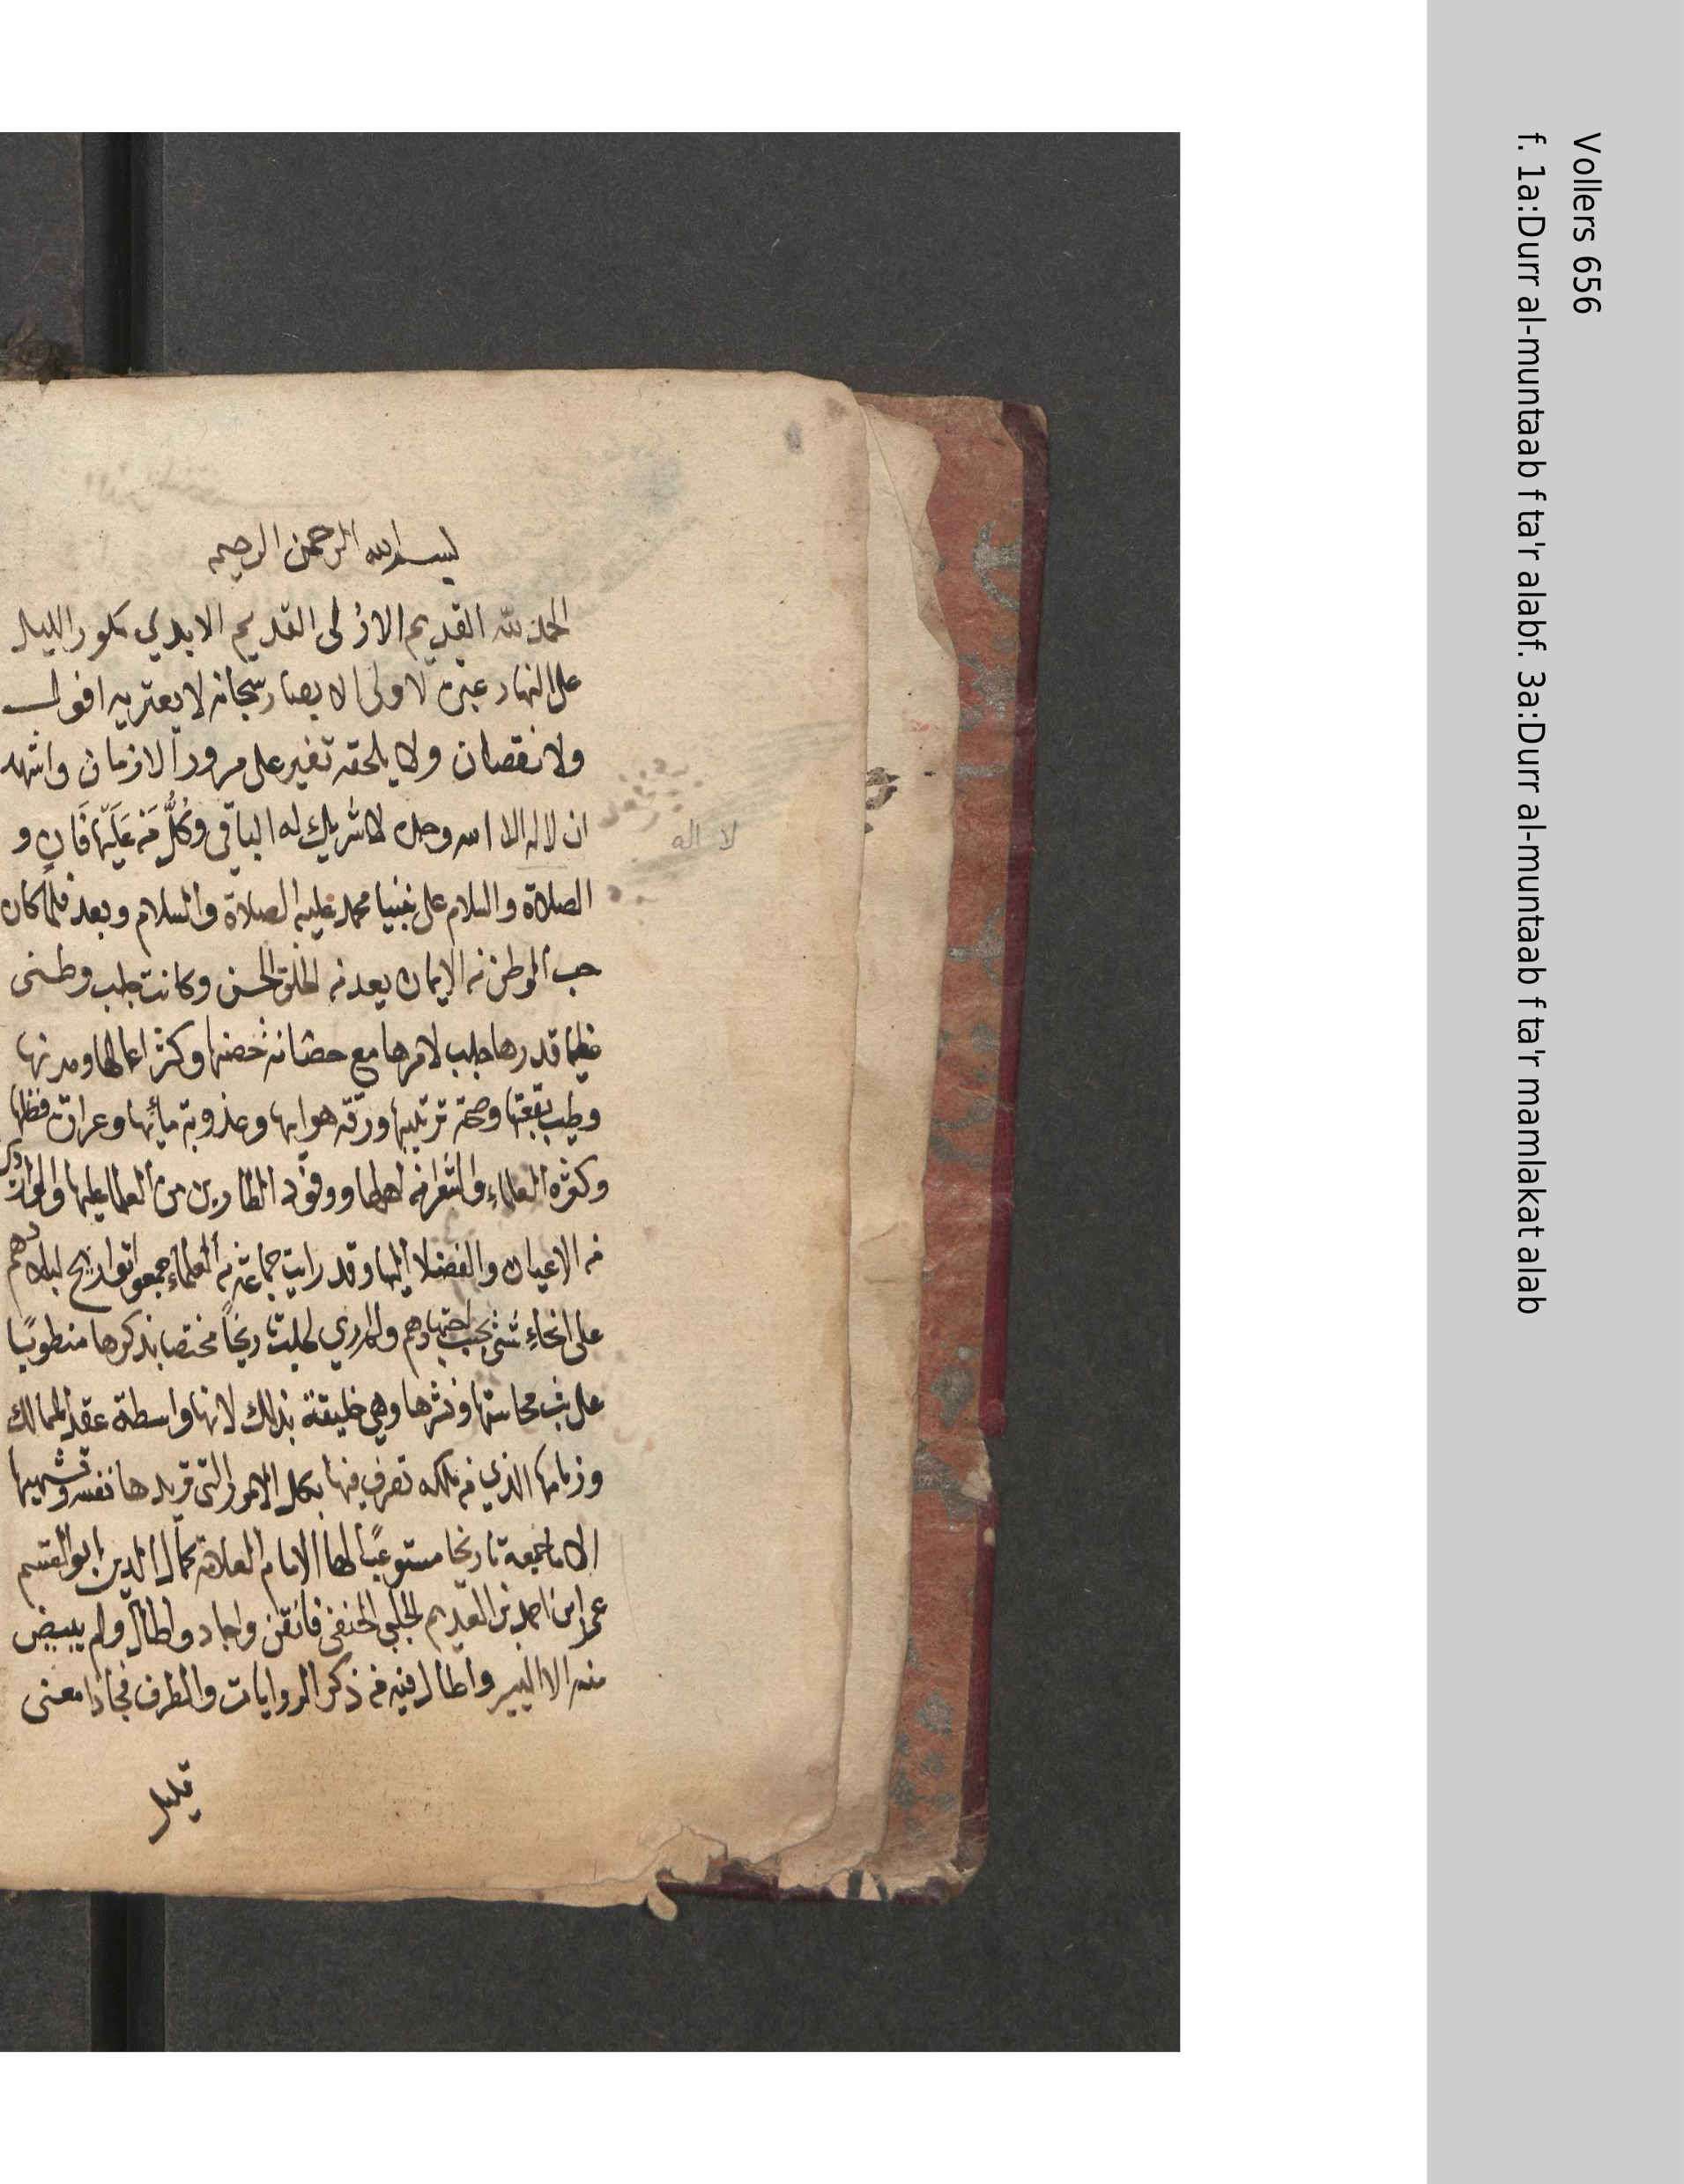 Vollers 656
f. 1a:Durr al-muntaab f ta'r alabf. 3a:Durr al-muntaab f ta'r mamlakat alab
بسم الله الرحمن الرحيم
الحمد لله القديم الازلى القديم الابدي مكور الليل
على النهار عبرة لاولى الابصار سبحانه لا يعتريه افول
ولا نقصان ولا يلحقه تغير على مرور الازمان واشهد
ان لا اله الا الله وحده لا شريك له الباقي وكُلُّ مَنْ عَلَيْهَا فَانٍ و
لا اله
الصلاة والسلام على نبينا محمد عليه الصلاة والسلام وبعد فلمّا كان
حب الوطن من الايمان يعد من الخلق الحسن وكانت حلب وطنى
عظيما قدرها حلب لامرها مع حصانة حصنها وكثر اعمالها ومدنها
وطيب بقعتها وصحة تربتها ورقة هوايها وعذوبة مائها وعراق فضلها
وكثره العلماء والشعرا من اهلها ووفود الطارين من العلما عليها والواردين
من الاعيان والفضلا اليها وقد رايت جماعة من العلماء جمعوا تواريخ لبلادهم
على انحاءٍ شتى بحسب اجتهادهم ولم ارى لحلب تاريخاً مختصا بذكرها منطويًا
على بث محاسنها ونشرها وهي خليقة بذلك لانها واسطة عقد الممالك
وزمامها الذي من ملكه تصرف فيها بكل الامور التى تريدها نفسه وتشتهيها
الا ما جمعه تاريخا مستوعبًا لها الامام العلامة كمال الدين ابو القسم
عمر ابن احمد بن العديم الحلبي الحنفى فاتقن واجاد واطال ولم يبيض
منه الا اليسير واطال فيه من ذكر الروايات والطرف فجا ذا معنى
قليل